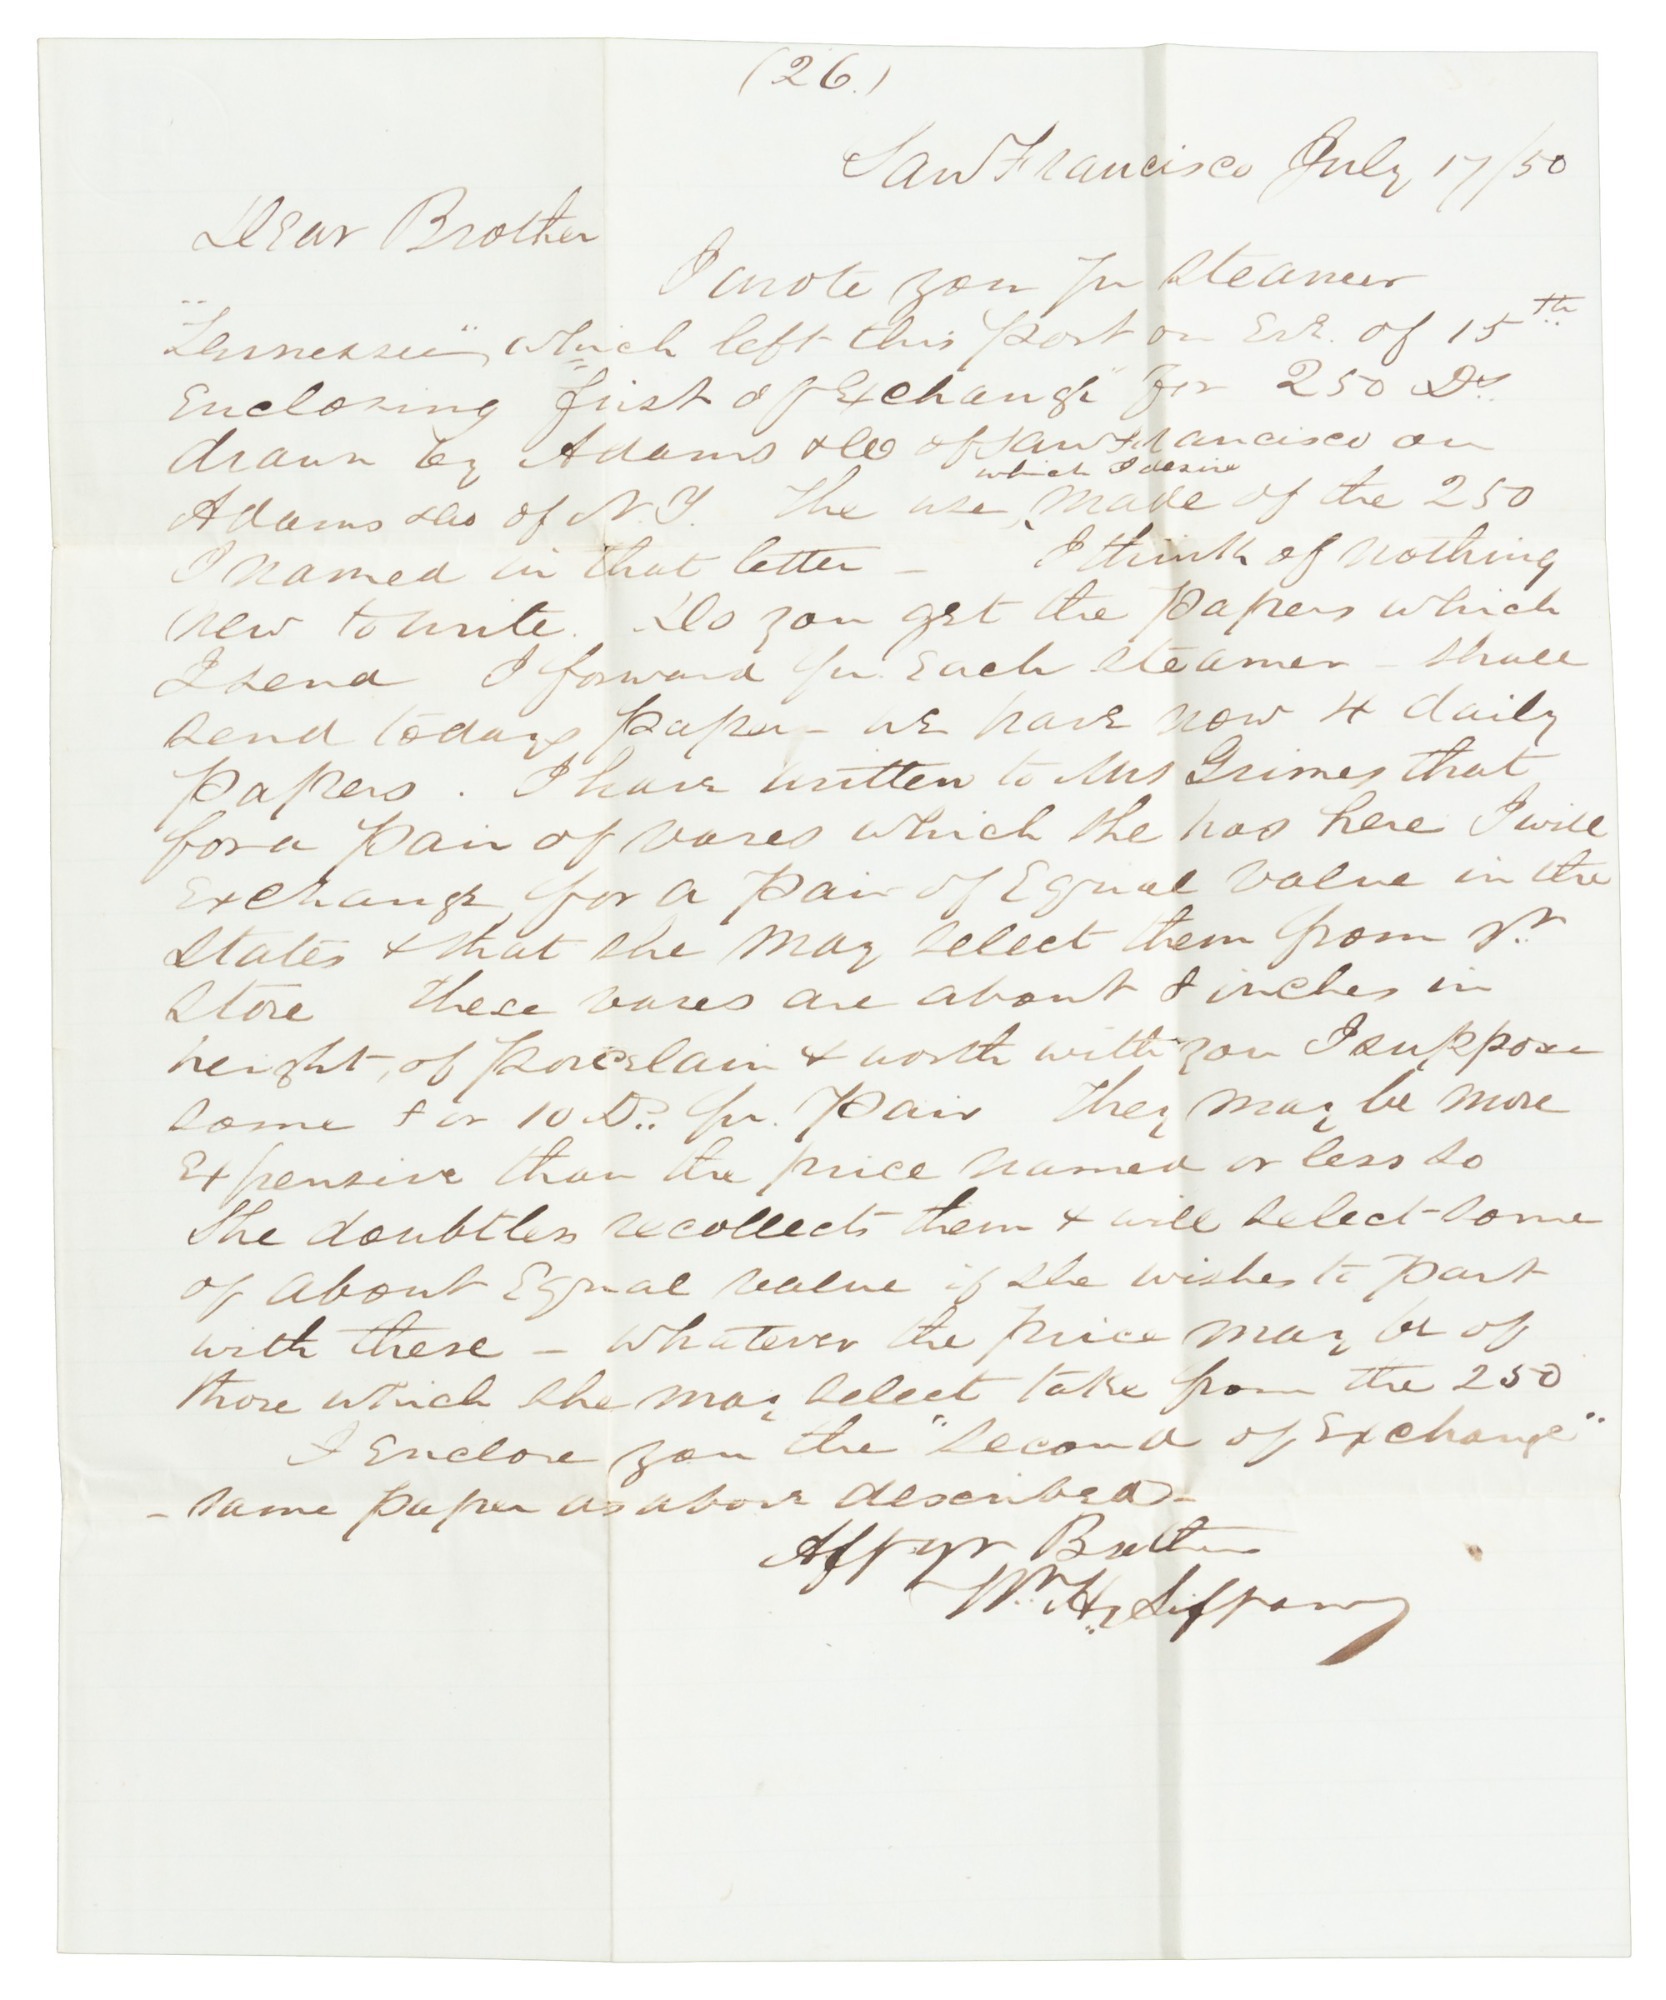 (26.)
San Francisco July 17/50
Dear Brother
I wrote you pr steamer
"Tennessee", which left this port on Eve. of 15th
Enclosing "first of Exchange" for 250 Ds.
drawn by Adams & Co of San Francisco on
which I desire
Adams & Co of N.Y. The use made of the 250
I named in that letter – I think of nothing
new to write. Do you get the papers which
I send I forward pr. Each steamer – shall
send todays paper – we have now 4 daily
papers. I have written to Mrs Grimes that
for a pair of vases which she has here I will
Exchange for a pair of Equal value in the
States & that she may select them from yr.
store These vases are about 8 inches in
height, of porcelain & worth with you I suppose
some 8 or 10 D.s pr. pair They may be more
Expensive than the price named or less so
She doubtless recollects them & will select some
of about Equal value if she wishes to part
with these – whatever the price may be of
those which she may select take from the 250
I Enclose you the "second of Exchange"
– same paper as above described –
Aff yr Brother
Wm. H.